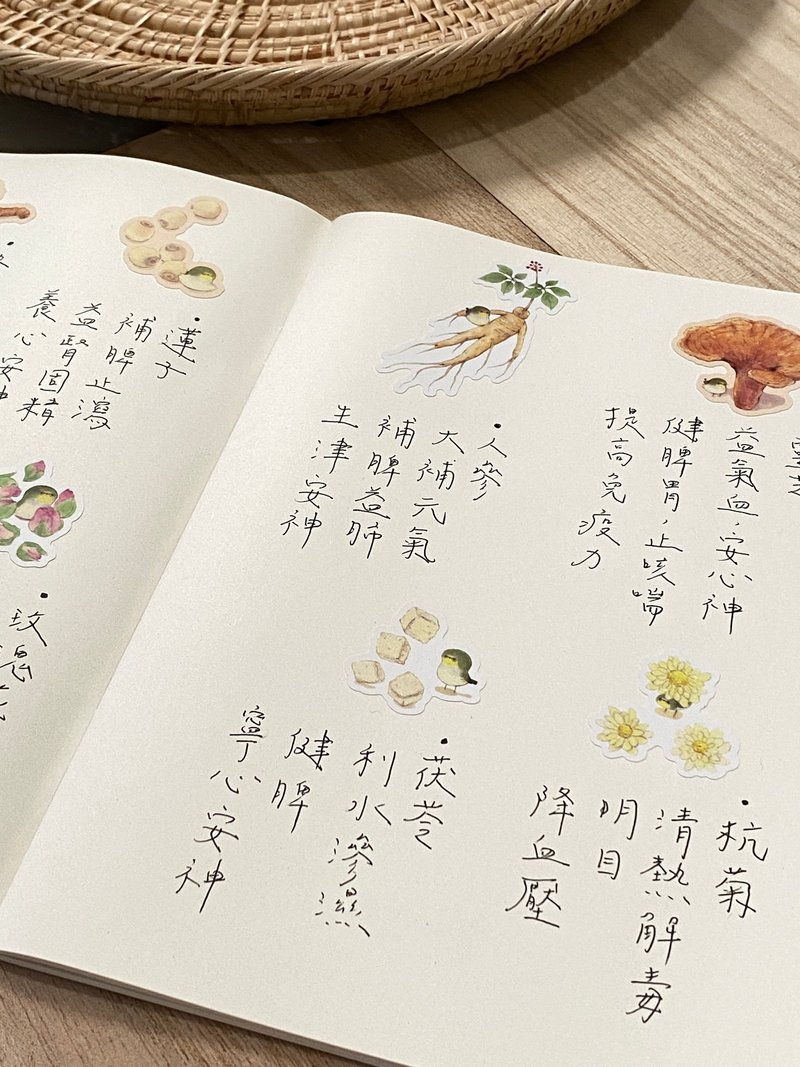 靈芝
益氣血,安心神
健脾胃,止咳喘
提高免疫力
•人參
大補元氣
補脾益肺
生津安神
•杭菊
清熱解毒
明目
降血壓
•茯苓
利水滲濕
健脾
寧心安神
•蓮子
補脾止瀉
益腎固精
養心安神
•玫瑰花